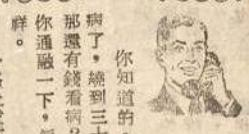 你知道的，
病了，繞到三十
那還有錢看病？
你通融一下，
樣。